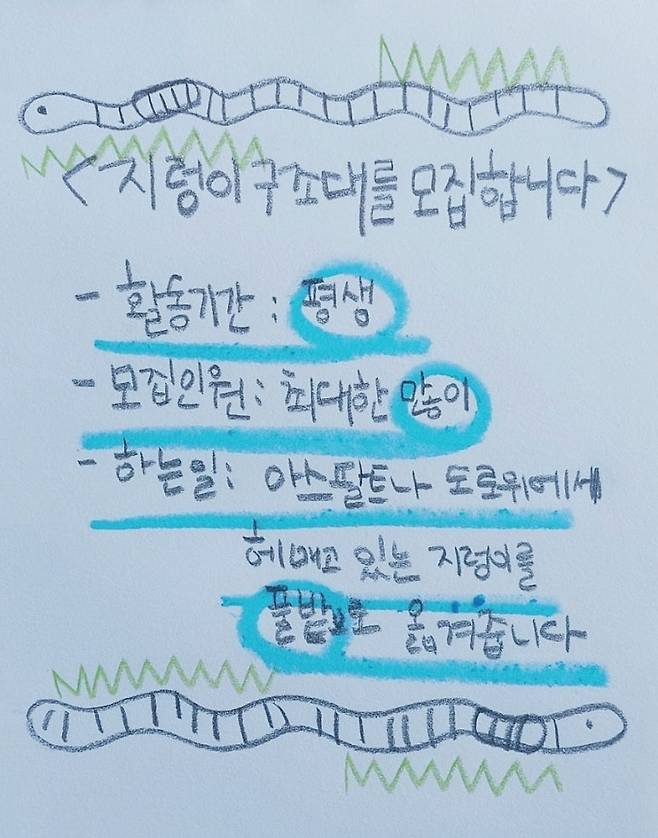 <지렁이구조대를 모집합니다>
- 활동기간 : 평생
- 모집인원 : 최대한 많이
- 하는일 : 아스팔트나 도로위에서
헤매고 있는 지렁이를
풀밭으로 옮겨줍니다